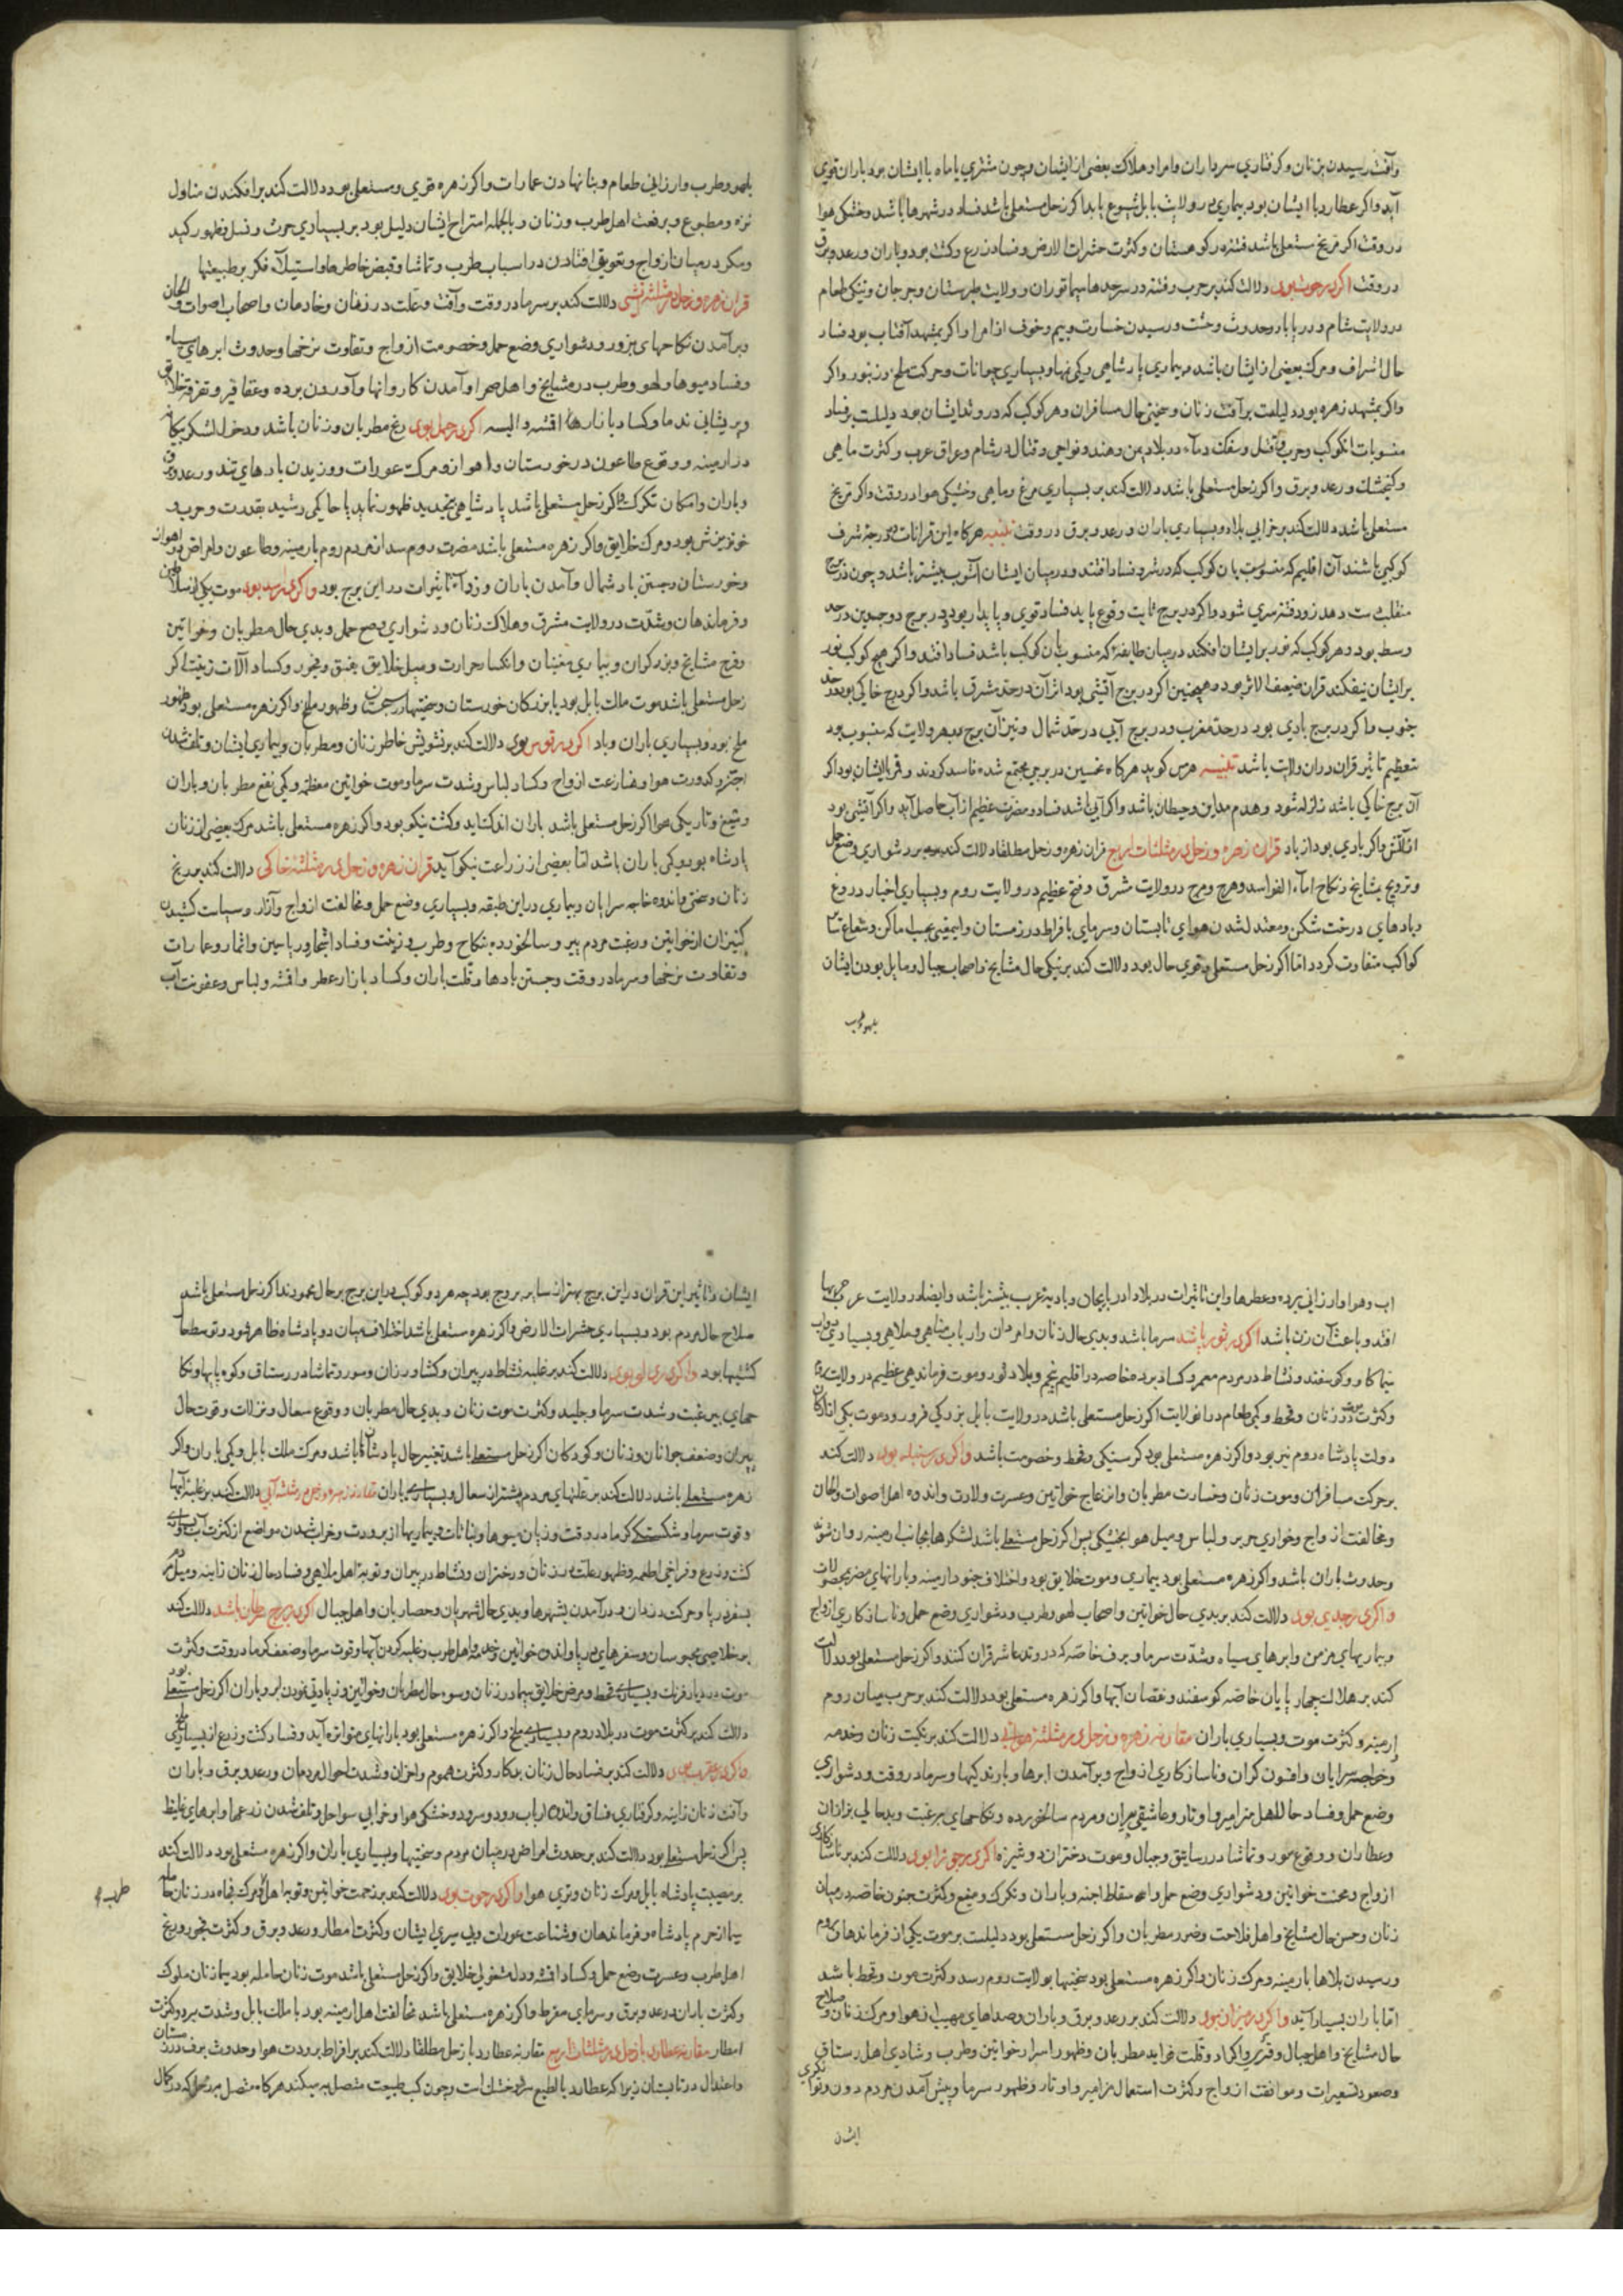 وآفت رسیدن بزنان وکرفتاري سرداران وامرا وهلاکت بعضی از ایشان وچون مشتري یا ماه با ایشان بود باران قوي
آید واکر عطارد با ایشان بود بیماري در ولایت بابل شیوع یابد اکر زحل مستعلی باشد فساد در شهرها باشد وخشکی هوا
در وقت اکر مریخ مستعلی باشد فتنه در کوهستان وکثرت حشرات الارض وفساد زرع وکشت بود وباران ورعد وبرق
در وقت اکر در حوت بود دلالت کند بر حرب وفتنه در سرحدها سیما توران وولایت طبرستان وجرجان وتنکی طعام
در ولایت شام ودر یابار وحدوث وحشت ورسیدن خسارت وبیم وخوف از امرا واکر بمشهد آفتاب بود فساد
حال اشراف ومرک بعضی از ایشان باشد وبیماري پادشاهی وکمی نهها وبسیاري حیوانات وحرکت ملخ وزنبور واکر
واکر بمشهد زهره بود دلیلست بر آفت زنان وسختی حال مسافران وهر کوکب که در وتد ایشان بود دلیلست بر فساد
منسوبات آن کوکب وحرب وقتل وسفک دماء در بلاد یمن وهند ونواحی وقتال در شام وعراق عرب وکثرت ماهی
وکنجشک ورعد وبرق واکر زحل مستعلی باشد دلالت کند بر بسیاري مرغ وماهی وخشکی هوا در وقت واکر مریخ
مستعلی باشد دلالت کند بر خرابی بلاد وبسیاري باران ورعد وبرق در وقت تنبیه هرکاه این قرانات در درجهٔ شرف
کوکبی باشند آن اقلیم که منسوب بان کوکب که در شر وفساد افتد ودر میان ایشان آشوب بیشتر باشد وچون در برج
منقلب دست دهد زود فتنه سري شود واکر در برج ثابت وقوع یابد فساد قوي وپایدار بود ودر برج دوجسدین در حد
وسط بود وهر کوکب که نور بر ایشان افکند در میان طایفهٔ که منسوب بان کوکب باشد فساد افتد واکر هیچ کوکب نور
بر ایشان نیفکند قران ضعیف الاثر بود وهمچنین اکر در برج آتشی بود اثر آن در حد مشرق باشد واکر در برج خاکی بود در حد
جنوب واکر در برج بادي بود در حد مغرب ودر برج آبی در حد شمال ونیز آن برج بهر ولایت که منسوب بود
تعظیم تاثیر قران در ان ولایت باشد تنبیه هرمس کوید هرکاه نحسین در برجی مجتمع شده فاسد کردند وقمر با ایشان بود اکر
آن برج خاکی باشد زلزله شود وهدم مداین وحیطان باشد واکر آبی باشد فساد ومضرت عظیم از آب حاصل آید واکر آتشی بود
از آتش واکر بادي بود از باد قران زهره وزحل در مثلثات اربع قران زهره وزحل مطلقا دلالت کند بر دشواري وضع حمل
وترویج مشایخ ونکاح اماء الفواسد وهرج ومرج در ولایت شرق وفتح عظیم در ولایت روم وبسیاري اخبار دروغ
وبادهاي درخت شکن ومعتدل شدن هواي تابستان وسرماي بافراط در زمستان واین معنی بحسب اماکن وشعاع سایر
کواکب متفاوت کردد اما اکر زحل مستعلی وقوي حال بود دلالت کند بر نیکی حال مشایخ واصحاب جبال ومایل بودن ایشان
بلهو وطرب
بلهو وطرب وارزانی طعام وبنا نهادن عمارات واکر زهره قوي ومستعلی بود دلالت کند بر افکندن منازل
نزه ومطبوع وبرغبت اهل طرب وزنان وبالجمله امتزاج ایشان دلیل بود بر بسیاري حرث ونسل وظهور کید
ومکر در میان ازواج وتعویق افتادن در اسباب طرب وتماشا وقبض خاطرها واستیلاء فکر بر طبیعتها
قران زهره وزحل در مثلثه آتشی دلالت کند بر سرما در وقت وآفت وعلت در زنان وخادمان واصحاب اصوات والحان
وبرآمدن نکاحهاي بزور ودشواري وضع حمل وخصومت ازواج وتفاوت نرخها وحدوث ابرهاي سیاه
وفساد میوها ولهو وطرب در مشایخ واهل صحرا وآمدن کاروانها وآوردن برده وعقاقیر وتفرقهٔ خلایق
وپریشانی ندما وکساد بازارها اقمشه والبسه اکر در حمل بود رنج مطربان وزنان باشد ودخل لشکر بیکانه
در ارمینه ووقوع طاعون در خورستان واهواز ومرک عورات ووزیدن بادهاي تند ورعد وبرق
وباران وامکان تکرک واکر زحل مستعلی باشد پادشاهی بتجدید ظهور نماید یا حاکمی رشید بقدرت وحرب
خونریزش بود ومرک خلایق واکر زهره مستعلی باشد مضرت روم رسد از مردم روم بارمینه وطاعون وامراض در اهواز
وخورستان وجستن باد شمال وآمدن باران وزود آید تاثیرات در این برج بود واکر در اسد بود موت یکی از سلاطین
وفرماندهان وشدت در ولایت مشرق وهلاک زنان ودشواري وضع حمل وبدي حال مطربان وخواتین
وفرح مشایخ وبزرکران وبیماري مغنیان وانکسار حرارت ومیل خلایق بفسق وفجور وکساد آلات زینت اکر
زحل مستعلی باشد موت ملک بابل بود یا بزرکان خورستان وسختیها در سجستان وظهور ملخ واکر زهره مستعلی بود ظهور
ملخ بود وبسیاري باران وباد اکر در قوس بود دلالت کند بر تشویش خاطر زنان ومطربان وبیماري ایشان وتلف شدن
اجنه وکدورت هوا ومنازعت ازواج وکساد لباس وشدت سرما وموت خواتین معظمه وکمی نفع مطربان وباران
ومیغ وتاریکی هوا اکر زحل مستعلی باشد باران اندک آید وکشت نیکو بود واکر زهره مستعلی باشد مرک بعضی از زنان
پادشاه بود وکمی باران باشد اما بعضی از زراعت نیکو آید قران زهره وزحل در مثلثه خاکی دلالت کند بر رنج
زنان وسختی واندوه خاجه سرایان وبیماري در این طبقه وبسیاري وضع حمل ومخالفت ازواج وآزار وسیاست کشیدن
کنیزان از خواتین ورغبت مردم پیر وسالخورده بنکاح وطرب وزینت وفساد اشجار وریاحین واثمار وعمارات
وتفاوت نرخها وسرما در وقت وجستن بادها وقلت باران وکساد بازار عطر واقمشه ولباس وعفونت آب
اب وهوا وارزانی برده وعطرها واین تاثیرات در بلاد ادربایجان وبادیهٔ عرب بیشتر باشد وایضا در ولایت عرب حربها
افتد وباعث آن زن باشد اکر در ثور باشد سرما باشد وبدي حال زنان وامردان وارباب مناهی وملاهی وبسیاري دواب
سیما کاو وکوسفند ونشاط در مردم معمر وکساد برده خاصه در اقلیم پنجم وبلاد لور وموت فرماندهی عظیم در ولایت
وکثرت موت زنان وقحط وکمی طعام در ان ولایت اکر زحل مستعلی باشد در ولایت بابل بزرکی فرو رود وموت یکی از ارکان
دولت پادشاه روم نیز بود واکر زهره مستعلی بود کرسنکی وقحط وخصومت باشد واکر در سنبله بود دلالت کند
بر حرکت مسافران وموت زنان وخسارت مطربان وانزعاج خواتین وعسرت ولادت واندوه اهل اصوات والحان
ومخالفت ازواج وخواري حریر ولباس ومیل هوا بخشکی پس اکر زحل مستعلی باشد لشکرها بجانب ارمینه روان شود
وحدوث باران باشد واکر زهره مستعلی بود بیماري وموت خلایق بود واختلاف جنود ارمینه وبارانهاي مضر بمحصولات
واکر در جدي بود دلالت کند بر بدي حال خواتین واصحاب لهو وطرب ودشواري وضع حمل وناسازکاري ازواج
وبیماریهاي مزمن وابرهاي سیاه وشدت سرما وبرف خاصه که در وتد عاشر قران کنند واکر زحل مستعلی بود دلالت
کند بر هلاک چهارپایان خاصه کوسفند ونقصان آبها واکر زهره مستعلی بود دلالت کند بر حرب میان روم
ارمینه وکثرت موت وبسیاري باران مقارنه زهره وزحل در مثلثه هوائی دلالت کند بر نکبت زنان وخدمه
وخواجه سرایان وافسون کران وناسازکاري ازواج وبرآمدن ابرها وبارندکیها وسرما در وقت ودشواري
وضع حمل وفساد حال اهل مزامیر واوتار وعاشقی پیران ومردم سالخورده ونکاحهاي برغبت وبدحالی بزازان
وعطاران ووقوع سور وتماشا در رساتیق وجبال وموت دختران دوشیزه واکر در جوزا بود دلالت کند بر ناسازکاري
ازواج ومحنت خواتین ودشواري وضع حمل واسقاط اجنه وباران وتکرک ومیغ وکثرت جنون خاصه در میان
زنان وحسن حال مشایخ واهل فلاحت وضرر مطربان واکر زحل مستعلی بود دلیلست بر موت یکی از فرماندهان روم
ورسیدن بلاها بارمینه ومرک زنان واکر زهره مستعلی بود سختیها بولایت روم رسد وکثرت موت وقحط باشد
اما باران بسیار آید واکر در میزان بود دلالت کند بر رعد وبرق وباران وصداهاي مهیب از هوا ومرک زنان وصلاح
حال مشایخ واهل جبال وقلت فواید مطربان وظهور اسرار خواتین وطرب وشادي اهل رستاق
وصعود تسعیرات وموافقت ازواج وکثرت استعمال مزامیر واوتار وظهور سرما وپیش آمدن مردم دون ونوکري
ایشان
ایشان وتاثیر این قران در این برج بهتر از سایر بروج بود چه هر دو کوکب در این برج بر حال محمودند اکر زحل مستعلی باشد
صلاح حال مردم بود وبسیاري حشرات الارض واکر زهره مستعلی باشد اختلاف میان دو پادشاه ظاهر شود وتوسط حال
کشتیها بود واکر در دلو بود دلالت کند بر غلبه نشاط در پیران وکشاورزان وسور وتماشا در رستاق وکوه پایها ونکا
حهاي بیرغبت وشدت سرما وجلید وکثرت موت زنان وبدي حال مطربان ووقوع سعال ونزلات وقوت حال
پیران وضعف جوانان وزنان وکودکان اکر زحل مستعلی باشد تغییر حال پادشاهان باشد ومرک ملک بابل وکمی باران واکر
زهره مستعلی باشد دلالت کند بر علتهاي مردم پیشتران سعال وبسیاري باران مقارنه زهره وزحل در مثلثه آبی دلالت کند بر غلبهٔ آبها
وقوت سرما وشکستکی کرما در وقت وزیان میوها ونباتات وبیماریها از برودت وخراب شدن مواضع از کثرت آب وبسیاري
کشت وزرع وفراخی اطعمه وظهور علت در زنان ودختران ونشاط در پیران وتوبهٔ اهل ملاهی وفساد حال زنان زانیه ومیل مردم
بسفر دریا وحرکت دزدان ودرآمدن بشهرها وبدي حال شهریان وحصاریان واهل جبال اکر در برج سرطان باشد دلالت کند
بر خلاصی محبوسان وسفرهاي دریا واندوه خواتین وخدمه واهل طرب وغلبه کردن آبها وقوت سرما وضعف کرما در وقت وکثرت
موت در دیار فرنک وبسیاري قحط ومرض خلایق سیما در زنان وسوء حال مطربان وخواتین وزیادتی نمودن ابر وباران اکر زحل مستعلی بود
دلالت کند بر کثرت موت در بلاد روم وبسیاري ملخ واکر زهره مستعلی بود بارانهاي متواتره آید وفساد کشت وزرع از بسیاري ملخ
واکر در عقرب بود دلالت کند بر فساد حال زنان بدکار وکثرت هموم واحزان وشدت احوال مردمان ورعد وبرق وباران
وآفت زنان زانیه وکرفتاري فساق واندوه ارباب رود وسرود وخشکی هوا وخرابی سواحل وتلف شدن زرعها وابرهاي غلیظ
پس اکر زحل مستعلی بود دلالت کند بر حدوث امراض در میان مردم وسختیها وبسیاري باران واکر زهره مستعلی بود دلالت کند
بر مصیبت پادشاه بابل ومرک زنان وتري هوا واکر در حوت بود دلالت کند بر زحمت خواتین وتوبه اهل ومرک فجاه در زنان حامله
طرب
سیما از حرم پادشاه وفرماندهان وشناعت عورات وبی سیري ایشان وکثرت امطار ورعد وبرق وکثرت فجور ورنج
اهل طرب وعسرت وضع حمل وکساد اقمشه ودل مشغولی خلایق واکر زحل مستعلی باشد موت زنان حامله بود سیما زنان ملوک
وکثرت باران ورعد وبرق وسرماي مفرط واکر زهره مستعلی باشد مخالفت اهل ارمینه بود با ملک بابل وشدت برد وکثرت
امطار مقارنه عطارد با زحل در مثلثات اربع مقارنه عطارد با زحل مطلقا دلالت کند بر افراط برودت هوا وحدوث برف در زمستان
واعتدال در تابستان زیرا که عطارد بالطبع سرد وخشک است وچون کسب طبیعت متصل به میکند هرکاه متصل بزحل که در کمال